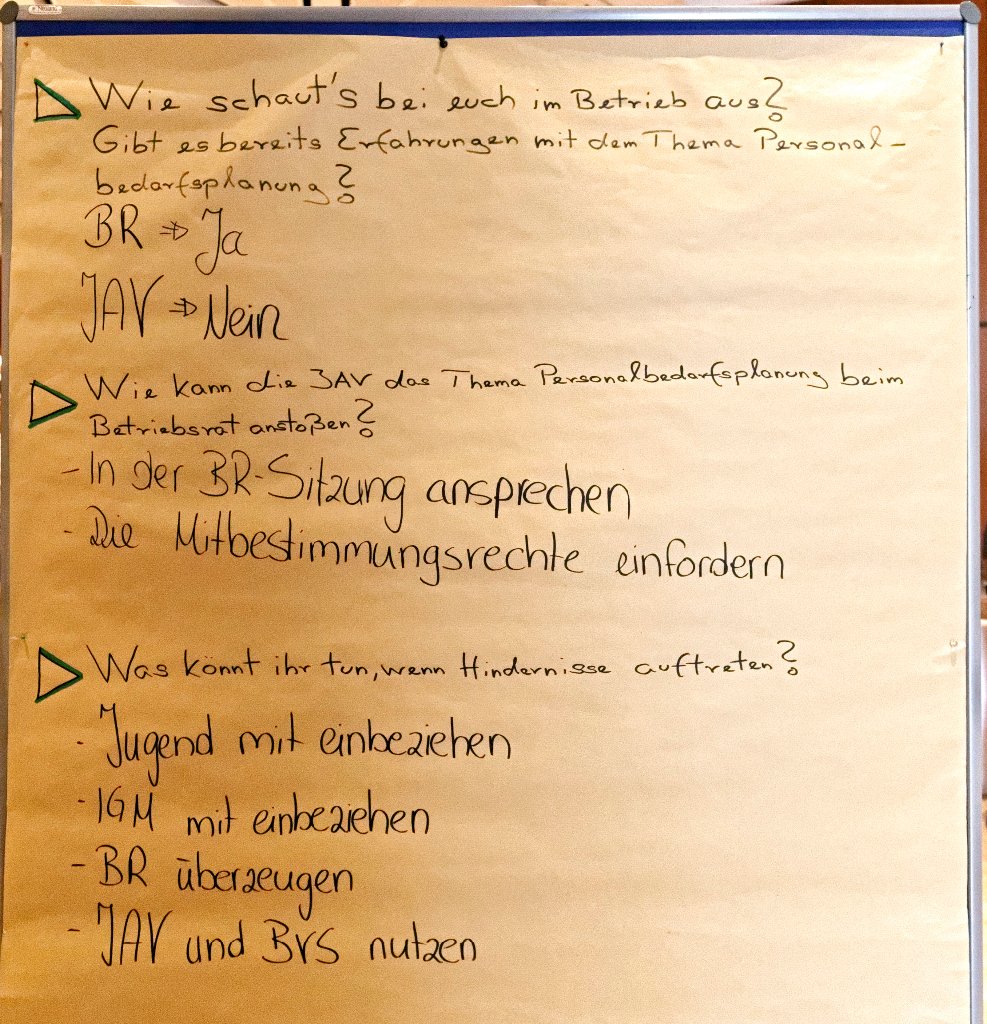 Wie schaut's bei euch im Betrieb aus?
Gibt es bereits Erfahrungen mit dem Thema Personal-
bedarfsplanung?
BR => Ja
JAV => Nein
Wie kann die JAV das Thema Personalbedarfsplanung beim
Betriebsrat anstoßen?
- In der BR-Sitzung ansprechen
- Die Mitbestimmungsrechte einfordern
Was könnt ihr tun, wenn Hindernisse auftreten?
- Jugend mit einbeziehen
- IGM mit einbeziehen
- BR überzeugen
- JAV und BVS nutzen